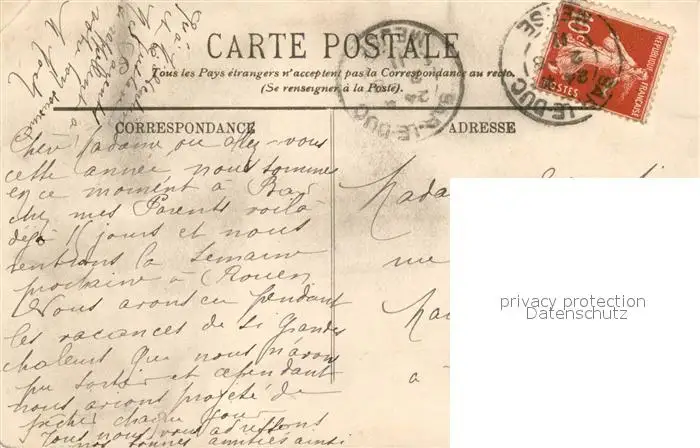 CARTE POSTALE
Tous les Pays étrangers n'acceptent pas la Correspondance au recto.
(Se renseigner à la Poste).
CORRESPONDANCE
ADRESSE
Chère Madame ou allez-vous
cette année nous sommes
en ce moment à Bar
chez mes Parents voilà
déjà 15 jours et nous
rentrons la semaine
prochaine à Rouen
Nous avons eu pendant
les vacances de si grandes
chaleurs que nous n'avons
pu sortir et cependant
nous avions projeté de
pêcher chaque jour
Tous nous vous adressons
nos bonnes amitiés ainsi
Mada
rue
à
BAR-LE-DUC
MEUSE
BAR-LE-DUC
MEUSE
10c
POSTES
REPUBLIQUE FRANÇAISE
privacy protection
Datenschutz